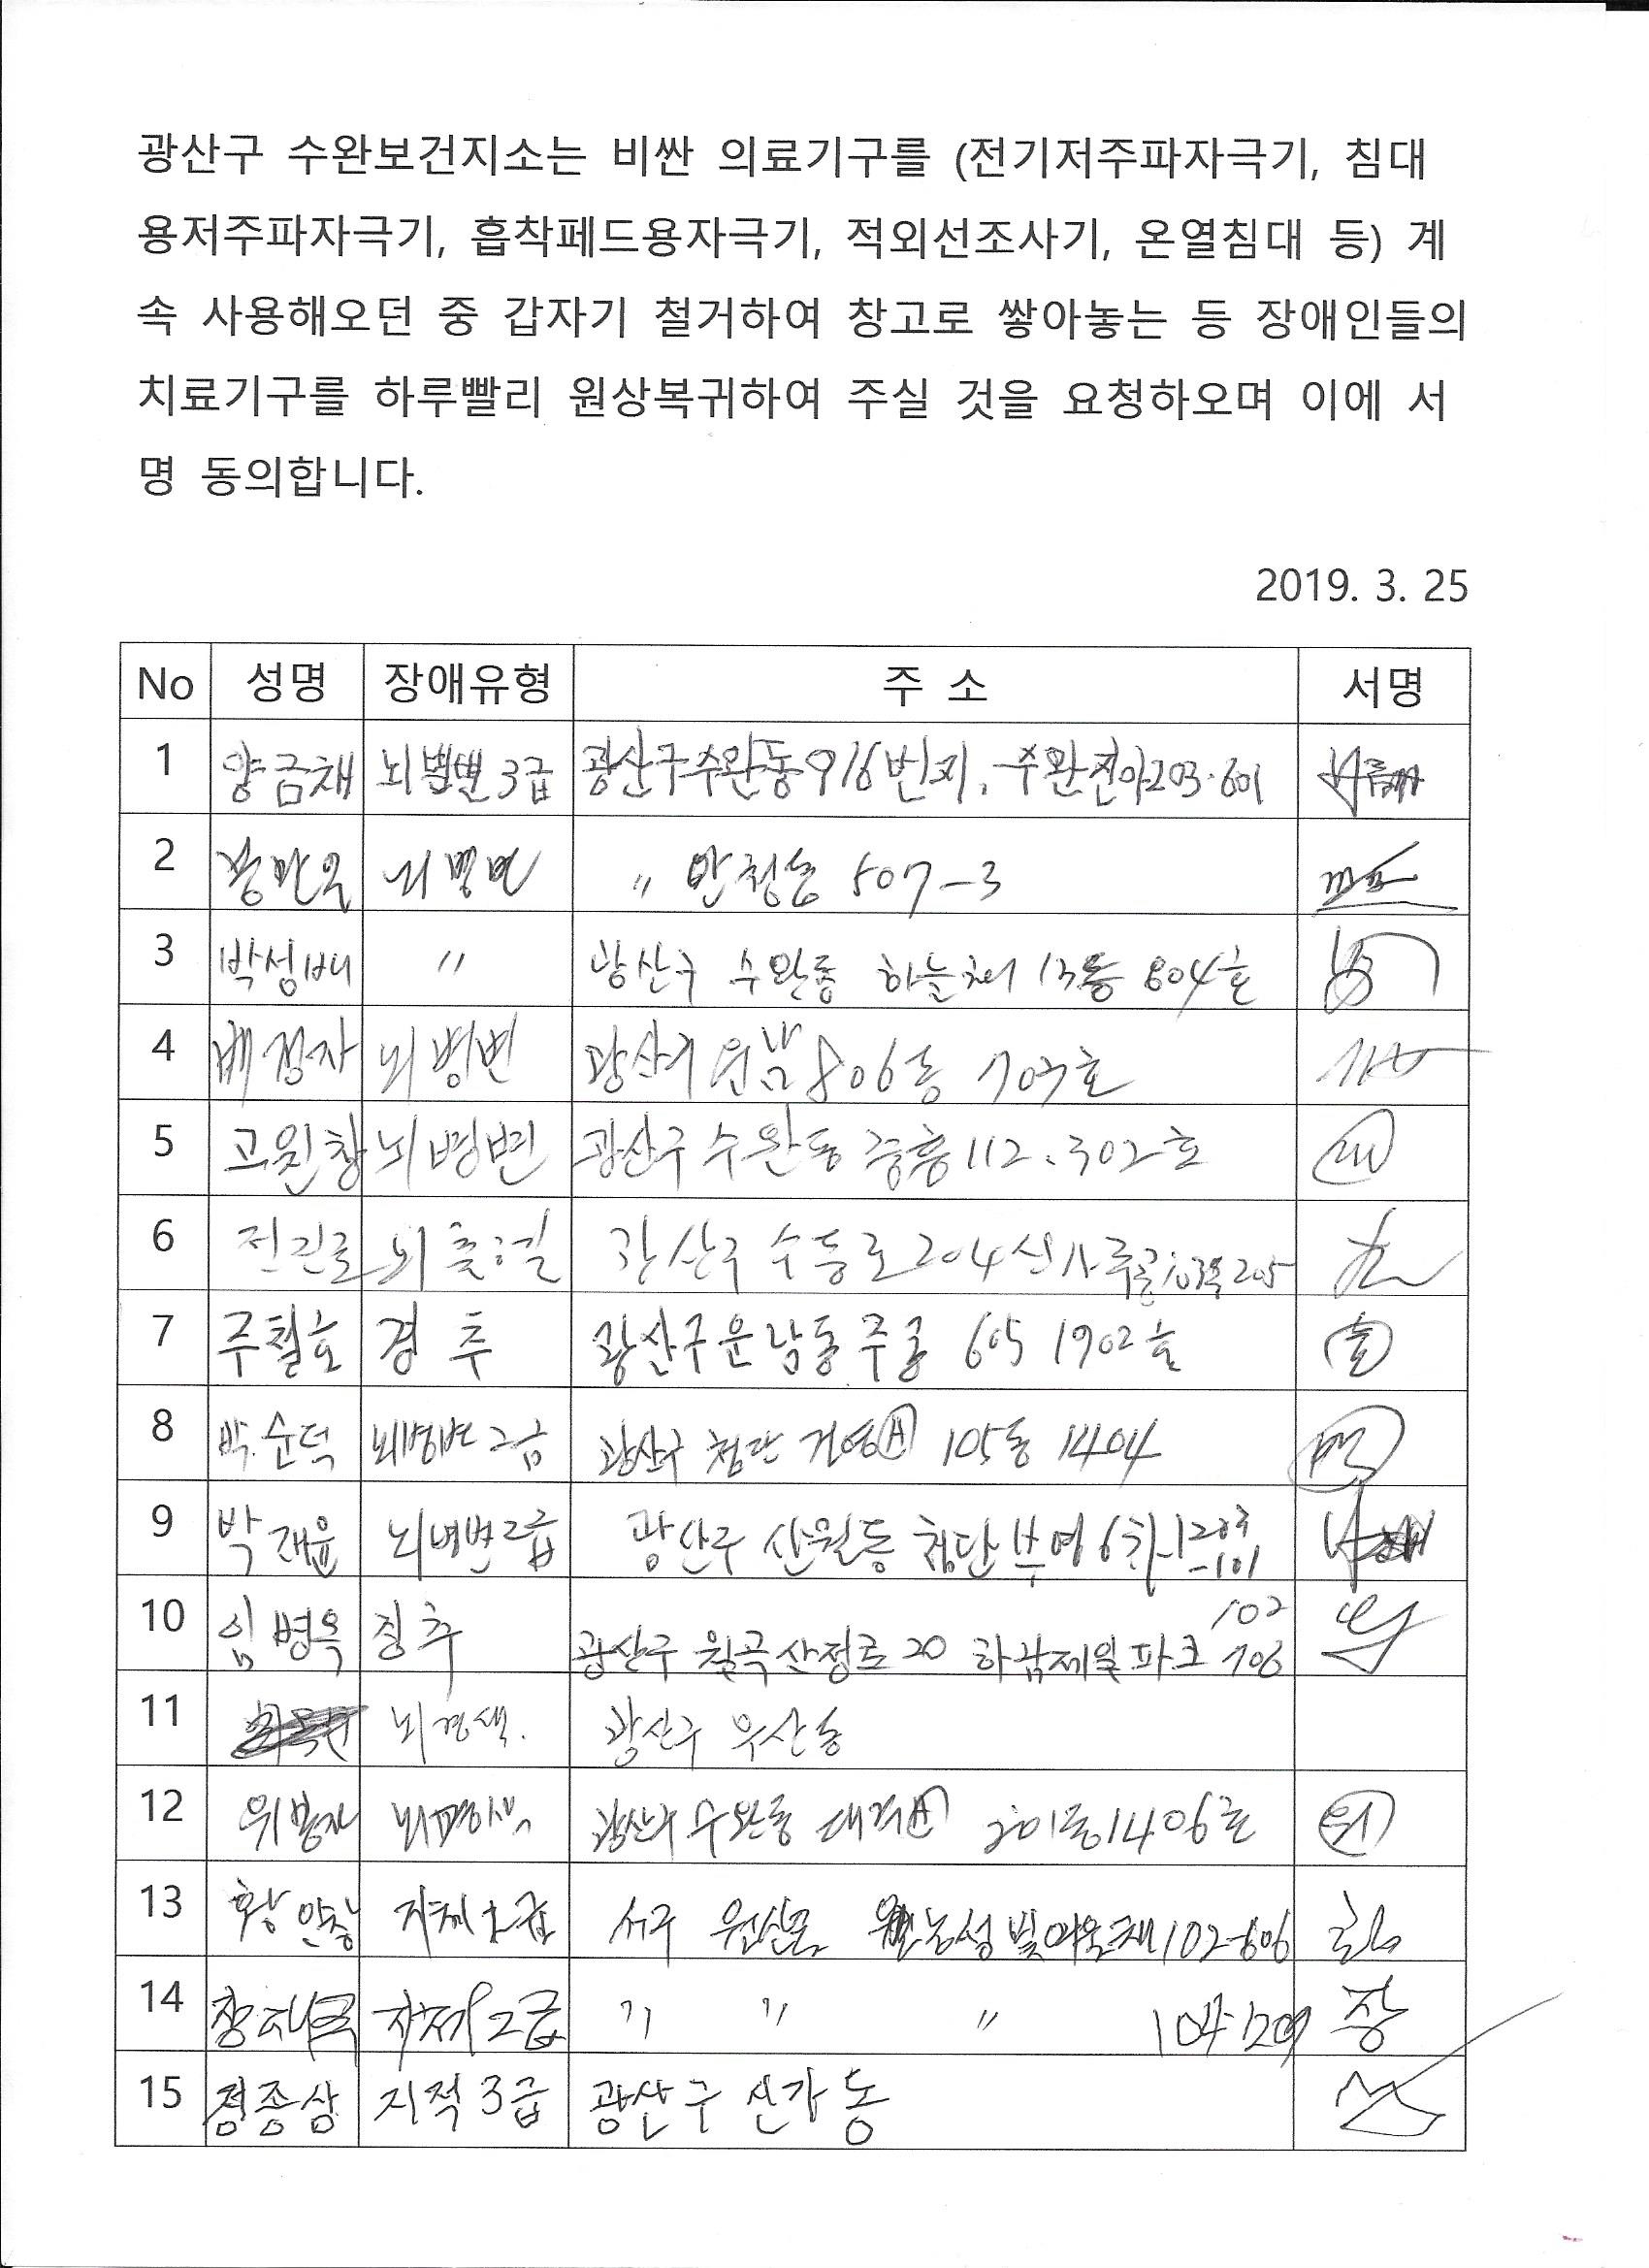 광산구 수완보건지소는 비싼 의료기구를 (전기저주파자극기, 침대
용저주파자극기, 흡착페드용자극기, 적외선조사기, 온열침대 등) 계
속 사용해오던 중 갑자기 철거하여 창고로 쌓아놓는 등 장애인들의
치료기구를 하루빨리 원상복귀하여 주실 것을 요청하오며 이에 서
명 동의합니다.
2019. 3. 25
No 성명 장애유형 주 소 서명
1 양금채 3급 광산구 수완동 916번지.
2 뇌병변 〃 안청동 507-3
3 박성배 〃 광산구 수완동 하늘채 804호
4 배정자 뇌병변 광산구 806동 703호
5 고원창 뇌병변 광산구 수완동 중흥 112. 302호
6 뇌출혈 204
7 주철호 경추 광산구 운남동 주공 605 1902호
8 박순덕 뇌병변 2급 광산구 첨단 105동 1404
9 박재윤 뇌병변 2급 광산구 산월동 첨단 부영 6차 1203
-101
102
10 임병옥 경추 광산구 월곡산정로 20 하남제일파크 706
11 뇌경색. 광산구 우산동
12 위봉자 광산구 수완동 201동 1406호 위
13 황 지체 급 서구 102-606
14 지체 2급 〃 〃 〃 장
15 정종상 지적 3급 광산구 신가동